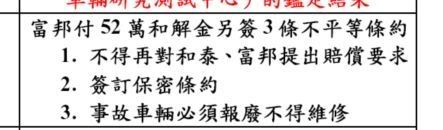 車輛研究測試中心」的鑑定結果
富邦付 52 萬和解金另簽 3 條不平等條約
1. 不得再對和泰、富邦提出賠償要求
2. 簽訂保密條約
3. 事故車輛必須報廢不得維修